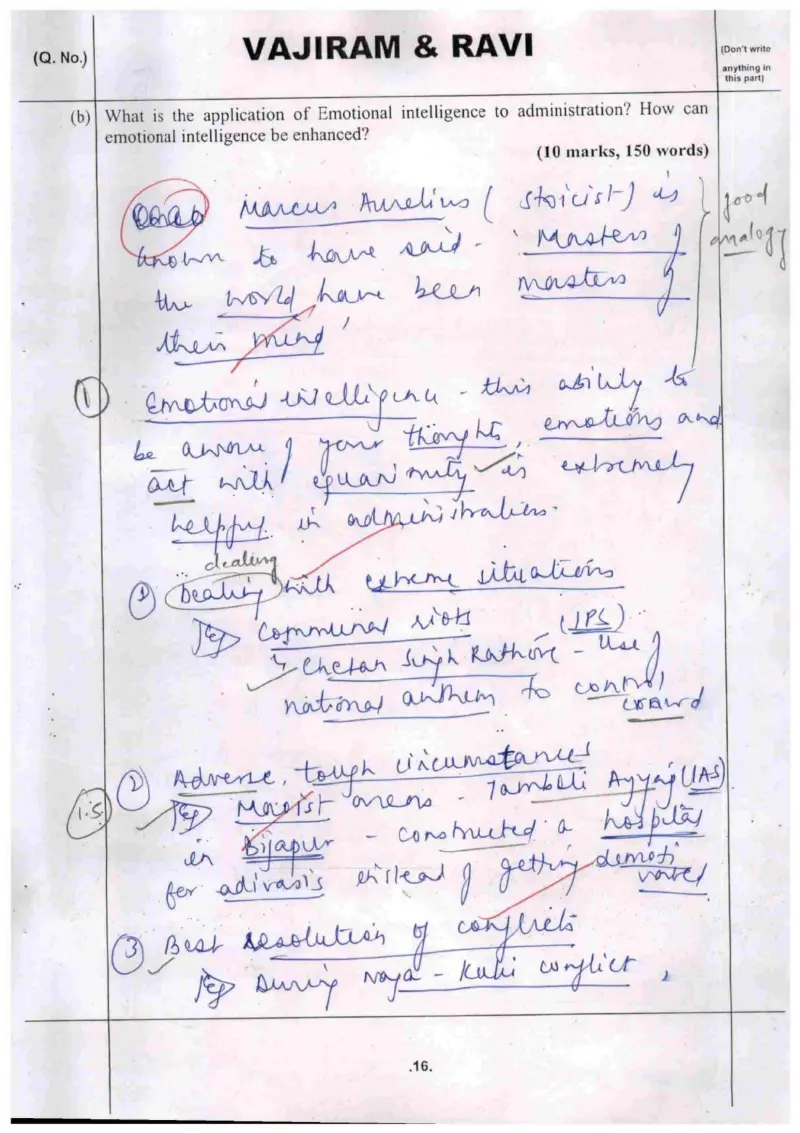 (Q. No.)
VAJIRAM & RAVI
(Don't write
anything in
this part)
(b) What is the application of Emotional intelligence to administration? How can
emotional intelligence be enhanced?
(10 marks, 150 words)
Marcus Aurelius (stoicist) is
known to have said - 'Masters of
the world have been masters of
their mind'
good
analogy
1
Emotional intelligence - this ability to
be aware of your thoughts, emotions and
act with equanimity is extremely
helpful in administration.
dealing
① Dealing with extreme situations
Eg Communal riots (IPS)
↳ Chetan Singh Rathore - Use of
national anthem to control
crowd
② Adverse, tough circumstances
1.5
Eg Maoist areas - Tamboli Ayyaj (IAS)
in Bijapur - constructed a hospital
for adivasis instead of getting demoti
vated
③ Best resolution of conflicts
Eg During Naga - Kuki conflict,
.16.